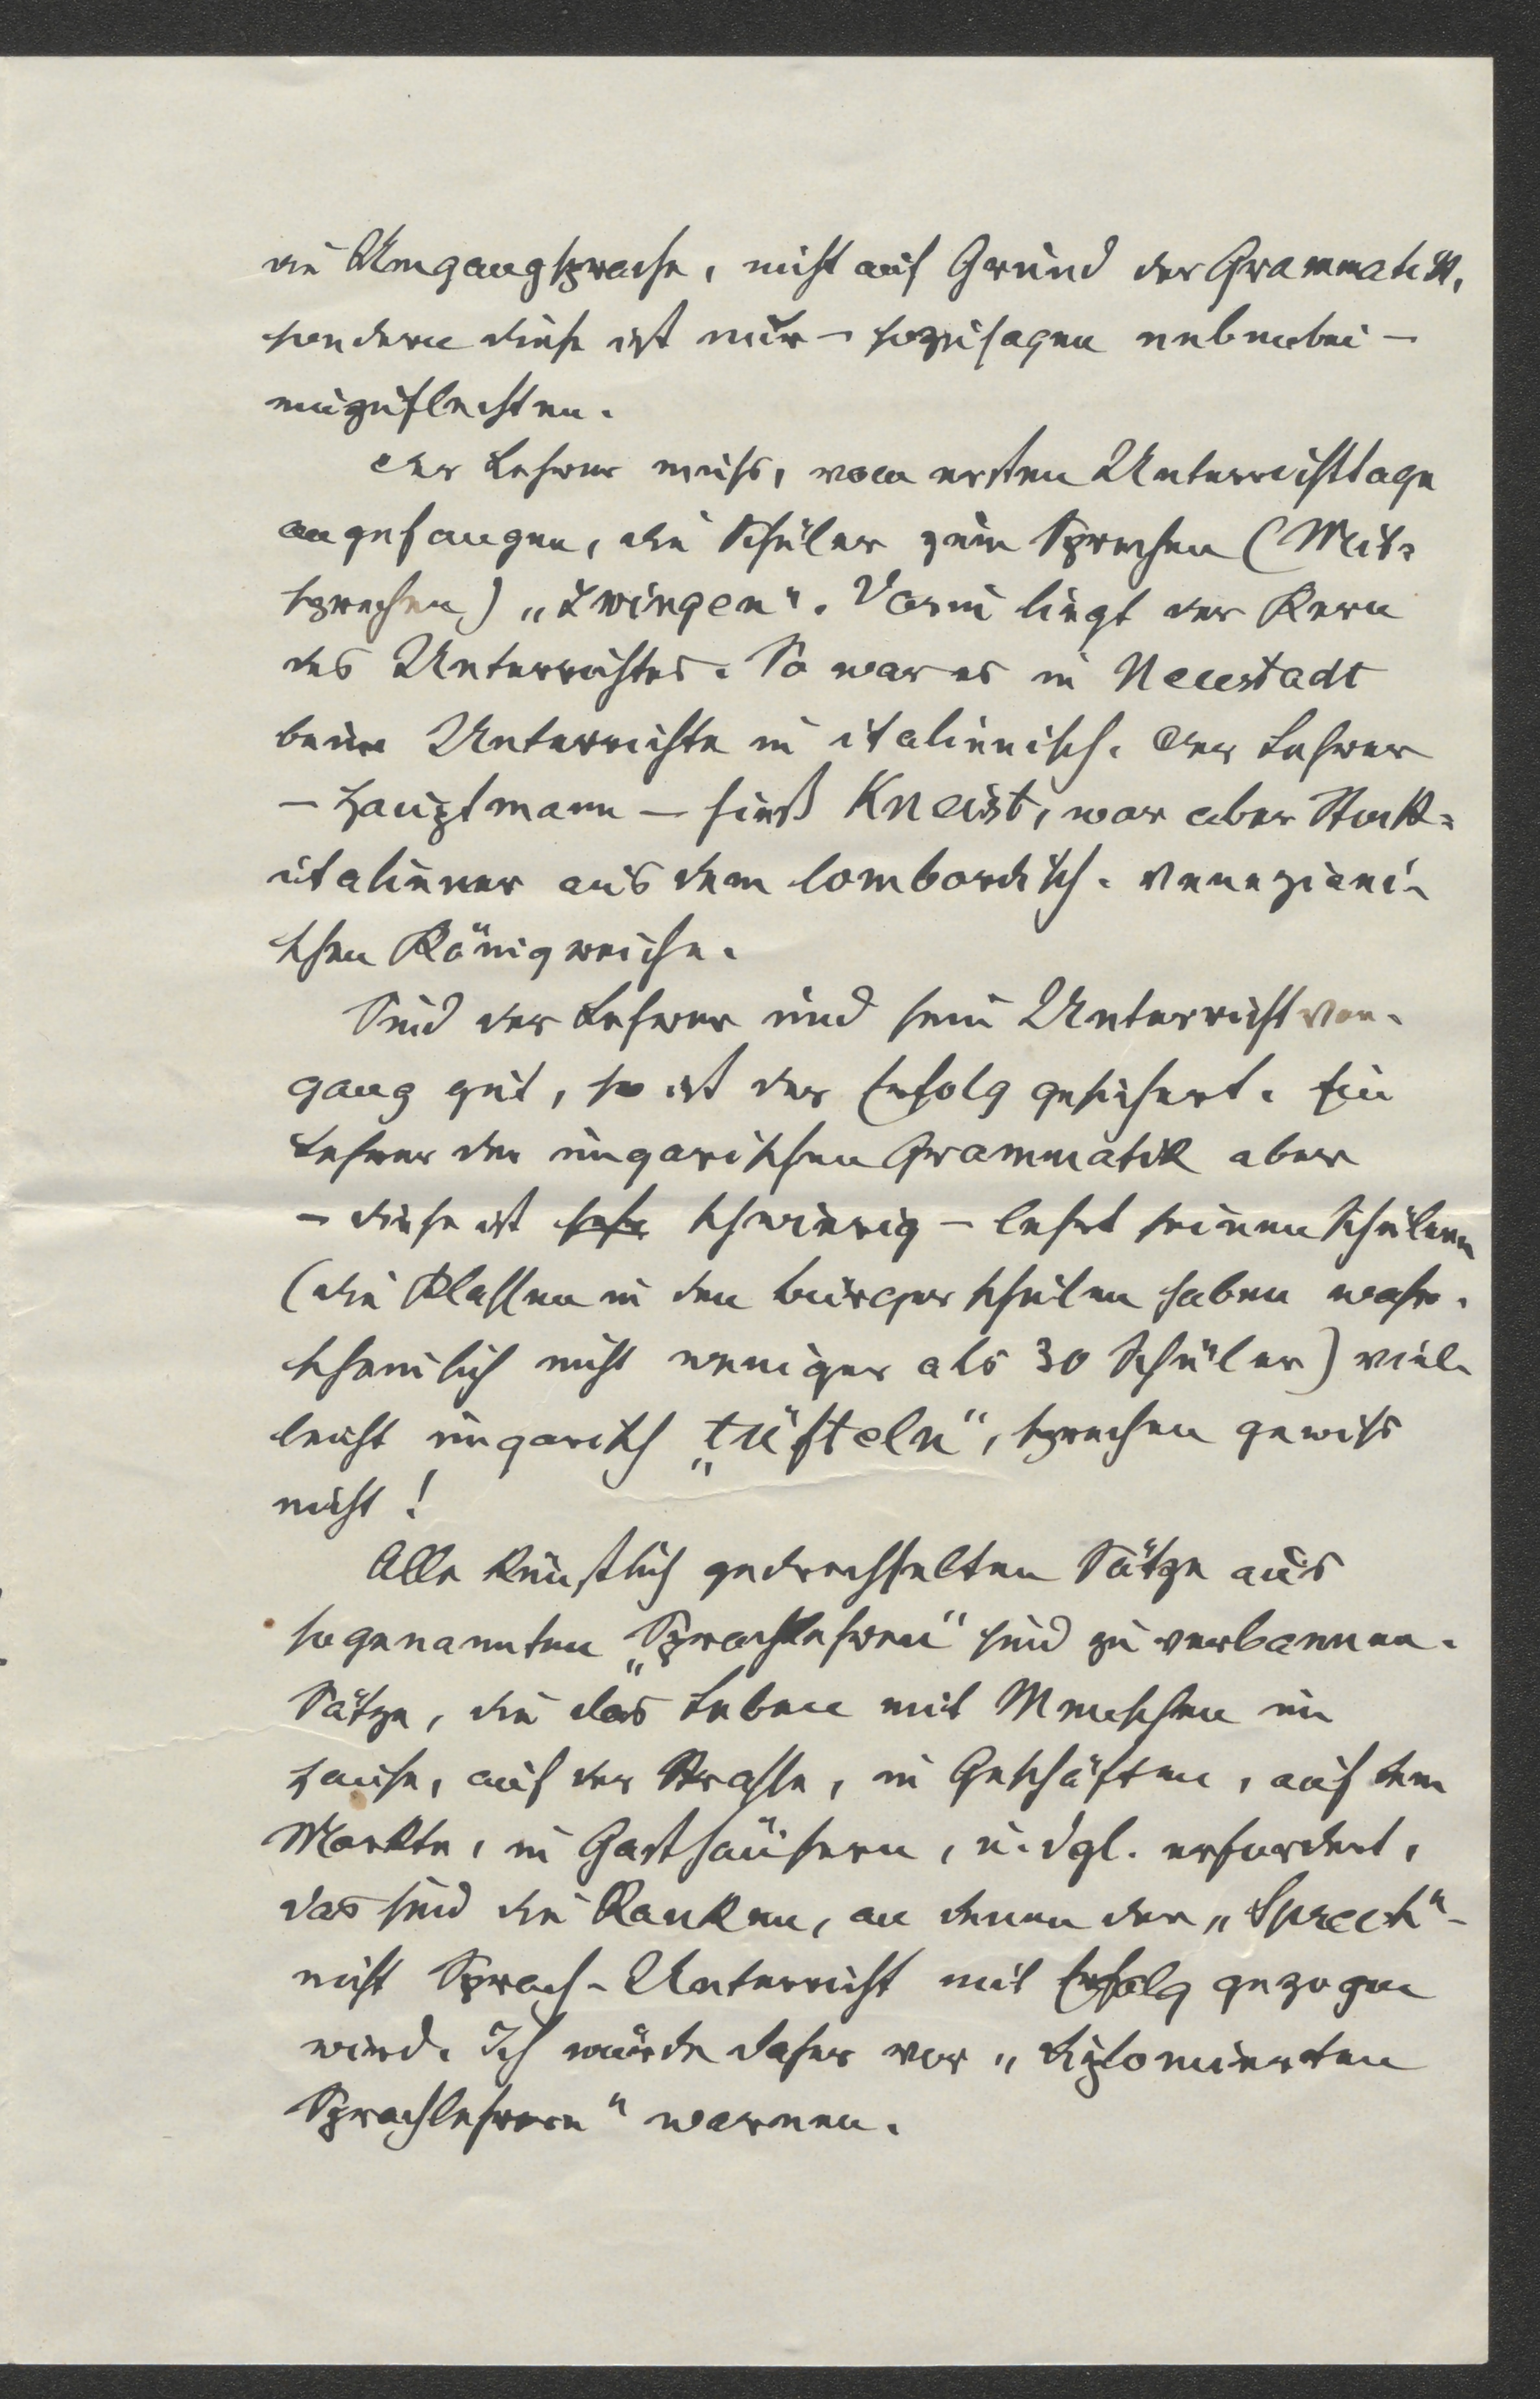 die Umgangsprache, nicht auf Grund der Grammatik,
sondern diese ist nur – sozusagen nebenbei –
einzuflechten.
Der Lehrer muss, vom ersten Unterrichttage
angefangen, die Schüler zum Sprechen (Mit=
sprechen) „zwingen". Darin liegt der Kern
des Unterrichtes. So war es in Neustadt
beim Unterrichte in italienisch. Der Lehrer
– Hauptmann – hieß Knaist, war aber Stock=
italiener aus dem lombardisch-veneziani-
schen Königreiche.
Sind der Lehrer und sein Unterrichtvor-
gang gut, so ist der Erfolg gesichert. Ein
Lehrer der ungarischen Grammatik aber
– diese ist sehr schwierig – lehrt seinen Schülern
(die Klassen in den Bürgerschulen haben wahr-
scheinlich nicht weniger als 30 Schüler) viel-
leicht ungarisch „tüfteln", sprechen gewiss
nicht!
Alle künstlich gedrechselten Sätze aus
sogenannten „Sprachlehren" sind zu verbannen.
Sätze, die das Leben mit Menschen im
Hause, auf der Strasse, in Geschäften, auf dem
Markte, in Gasthäusern, u. dgl. erfordert,
das sind die Ranken, an denen der „Sprech"-
nicht Sprach-Unterricht mit Erfolg gezogen
wird. Ich würde daher vor „diplomierten
Sprachlehrern" warnen.